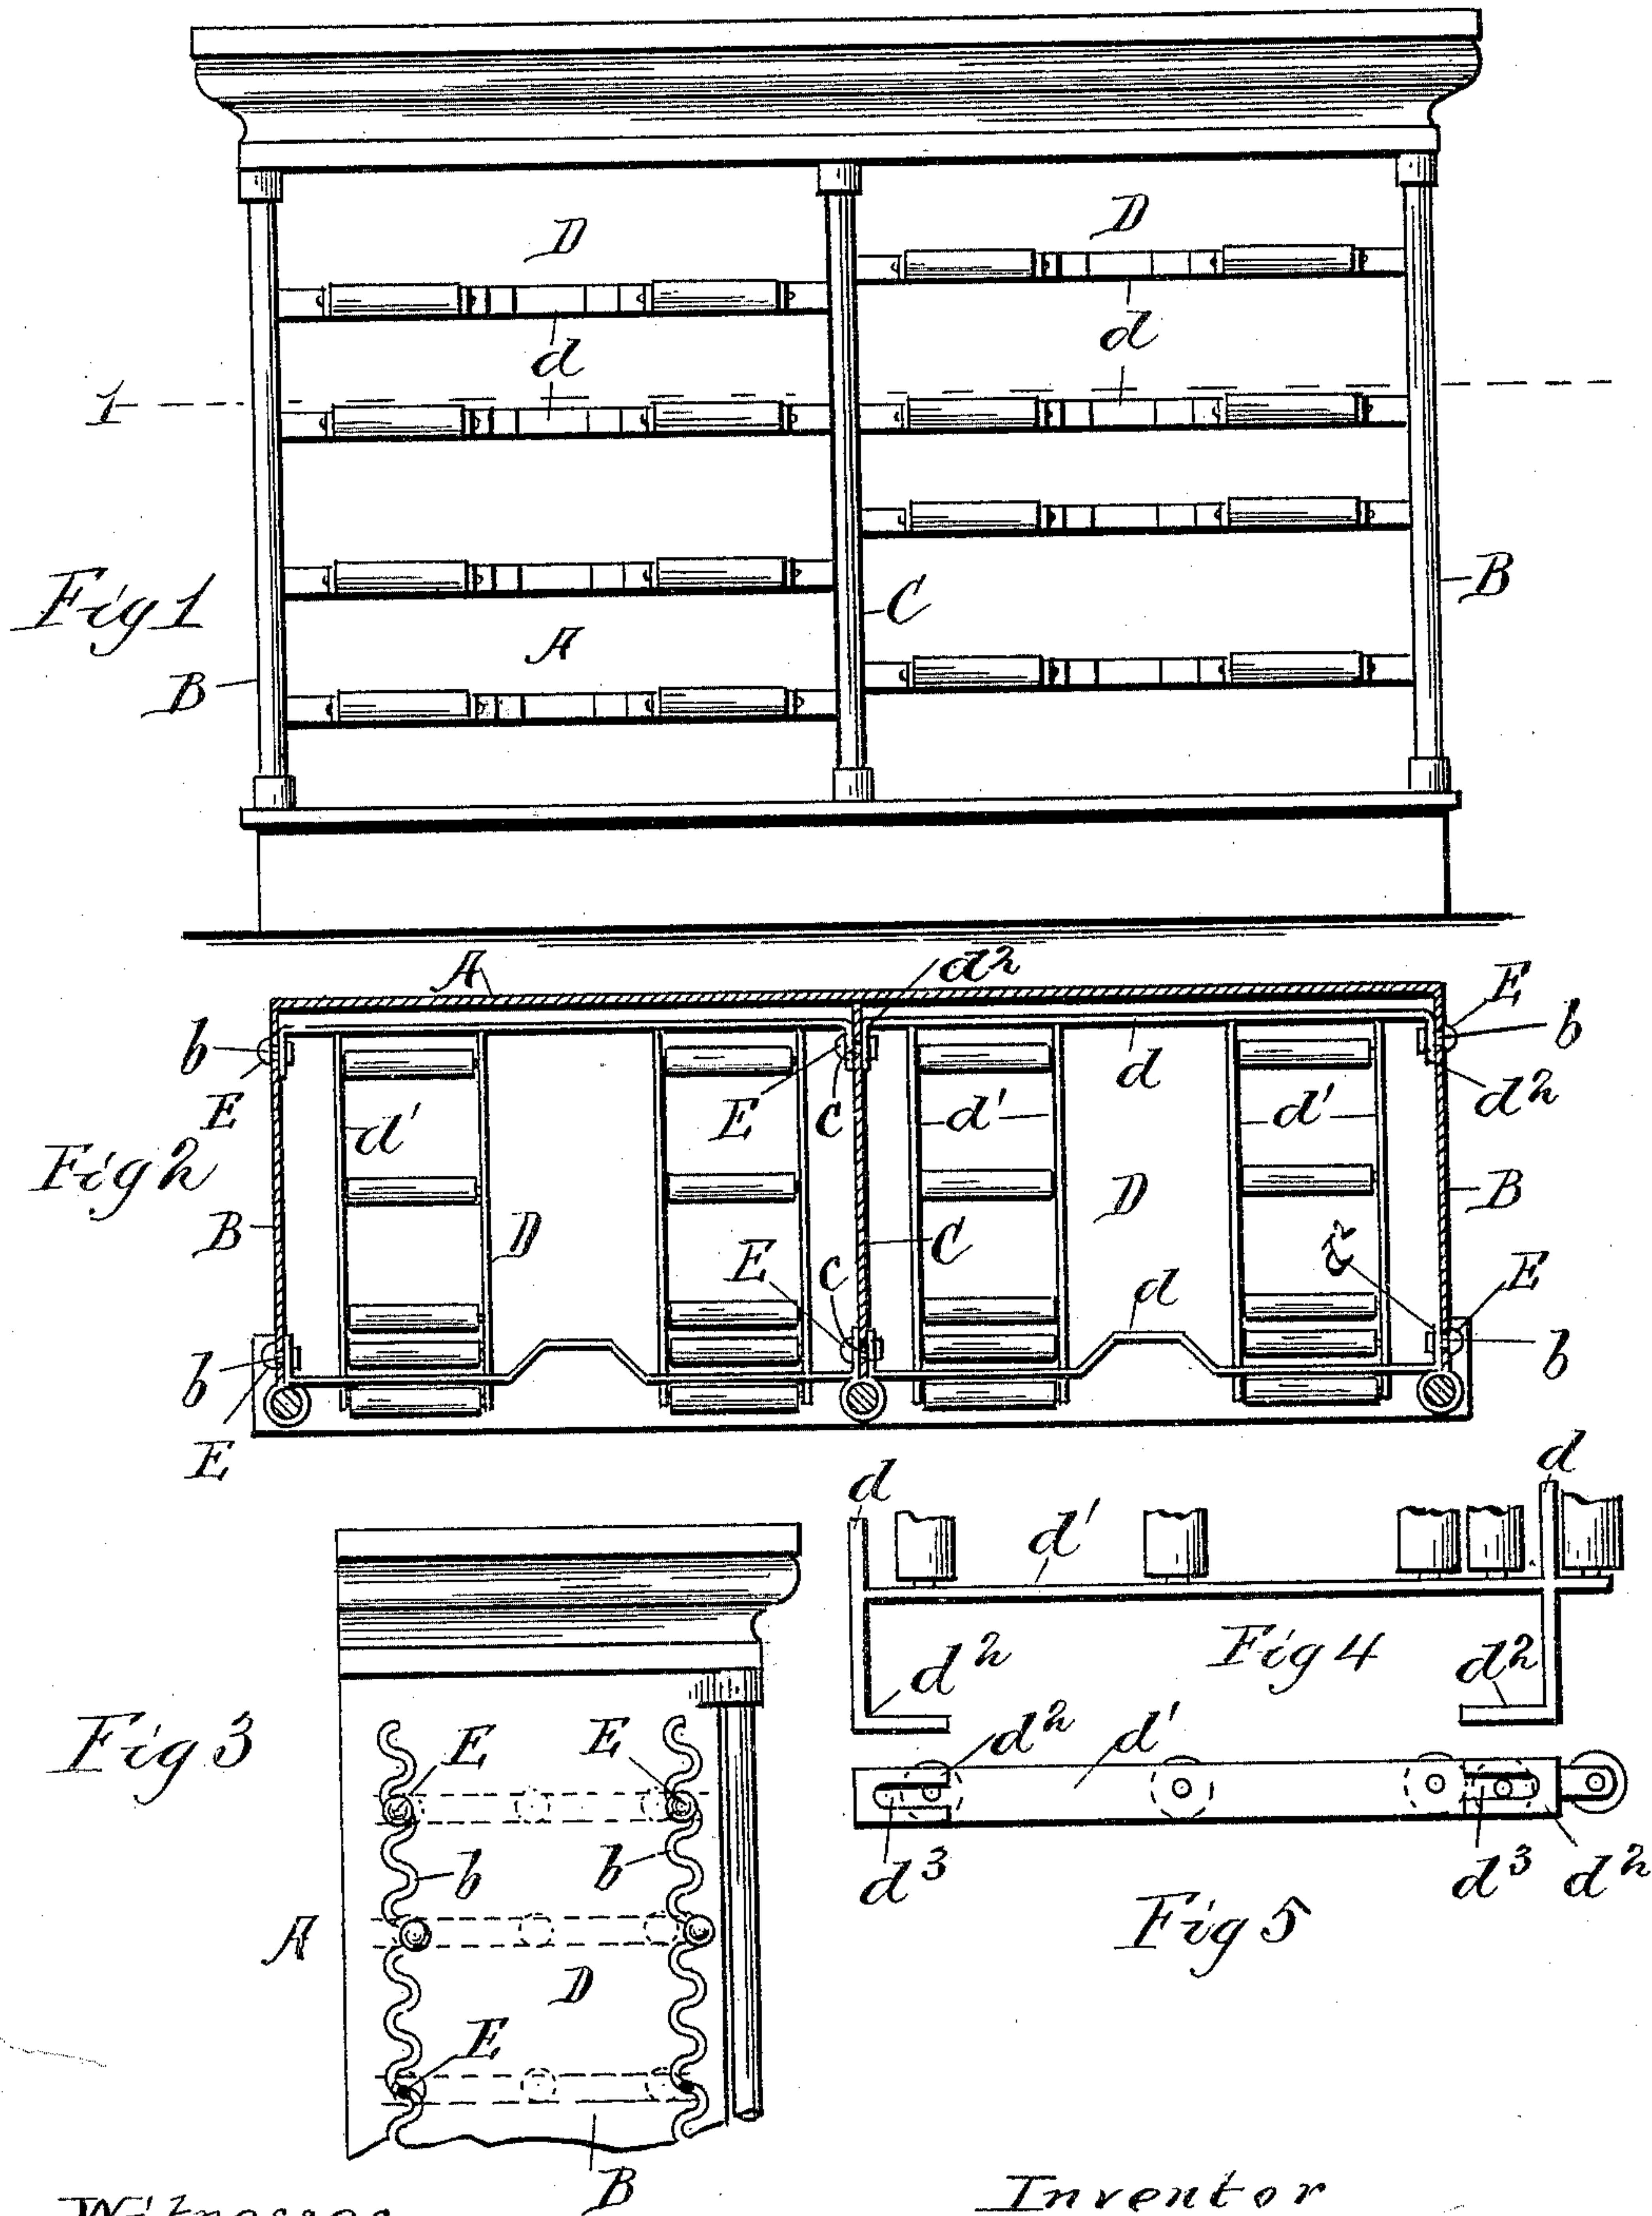 D
D
d
d
1
Fig 1
A
C
B
B
A
d²
E
b
b
E
d'
E
c
d'
d
d'
d²
Fig 2
B
D
E
c
C
D
B
E
d
b
b
E
d
d
d'
Fig 4
d²
d²
Fig 3
E
E
d²
d'
b
b
d³
d³
d²
Fig 5
A
D
E
B
Witnesses
Inventor